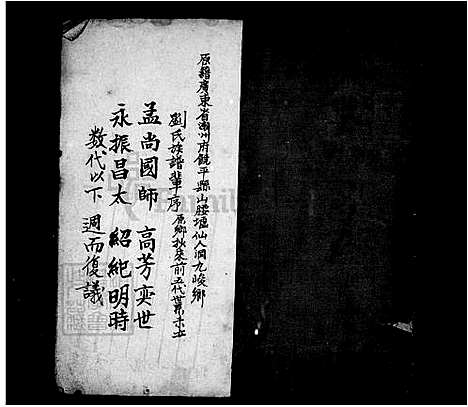 原籍廣東省潮州府饒平縣山腰墟仙人洞九峻鄉
劉氏族譜輩序 原鄉 前五代
孟尚國師 高芳奕世
永振昌太 紹紀明時
数代以下 週而復議